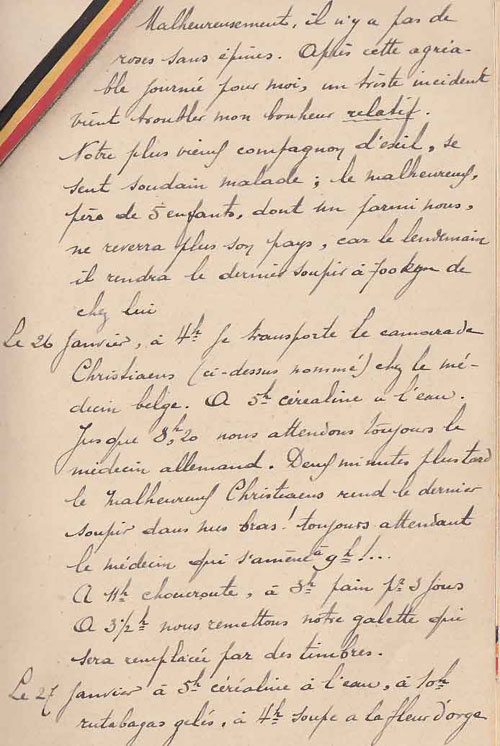 Malheureusement, il n'y a pas de
roses sans épines. Après cette agréa-
ble journée pour moi, un triste incident
vient troubler mon bonheur relatif.
Notre plus vieux compagnon d'exil, se
sent soudain malade ; le malheureux,
père de 5 enfants, dont un parmi nous,
ne reverra plus son pays, car le lendemain
il rendra le dernier soupir à 700 kgm de
chez lui
Le 26 Janvier, à 4h je transporte le camarade
Christiaens (ci-dessus nommé) chez le mé-
decin belge. A 5h céréaline à l'eau.
Jusque 8h20 nous attendons toujours le
médecin allemand. Deux minutes plus tard
le malheureux Christiaens rend le dernier
soupir dans nos bras ! toujours attendant
le médecin qui s'amène à 9h !...
A 11h choucroute, à 3h pain pr 3 jours
A 3 1/2h nous remettons notre galette qui
sera remplacée par des timbres.
Le 27 Janvier à 5h céréaline à l'eau, à 10h
rutabagas gelés, à 4h soupe a la fleur d'orge